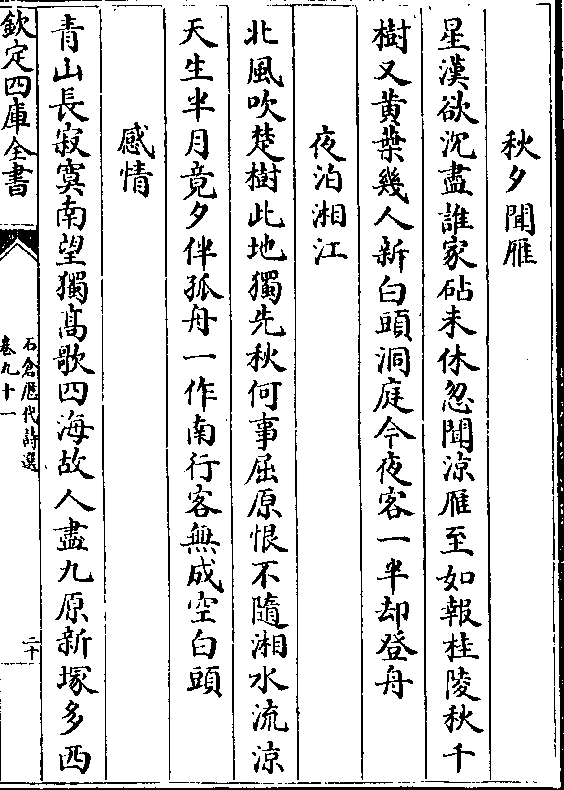 秋夕聞雁
星漢欲沉盡誰家砧未休忽聞涼雁至如報桂陵秋千
樹又黄葉幾人新白頭洞庭今夜客一半却登舟
夜泊湘江
北風吹楚樹此地獨先秋何事屈原恨不隨湘水流涼
天生半月竟夕伴孤舟一作南行客無成空白頭
感情
青山長寂寞南望獨髙歌四海故人盡九原新塚多西
欽定四庫全書
石倉歴代詩選
卷九十一
二十